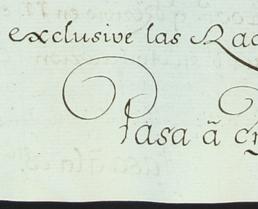 exclusive las Rac
Pasa ã